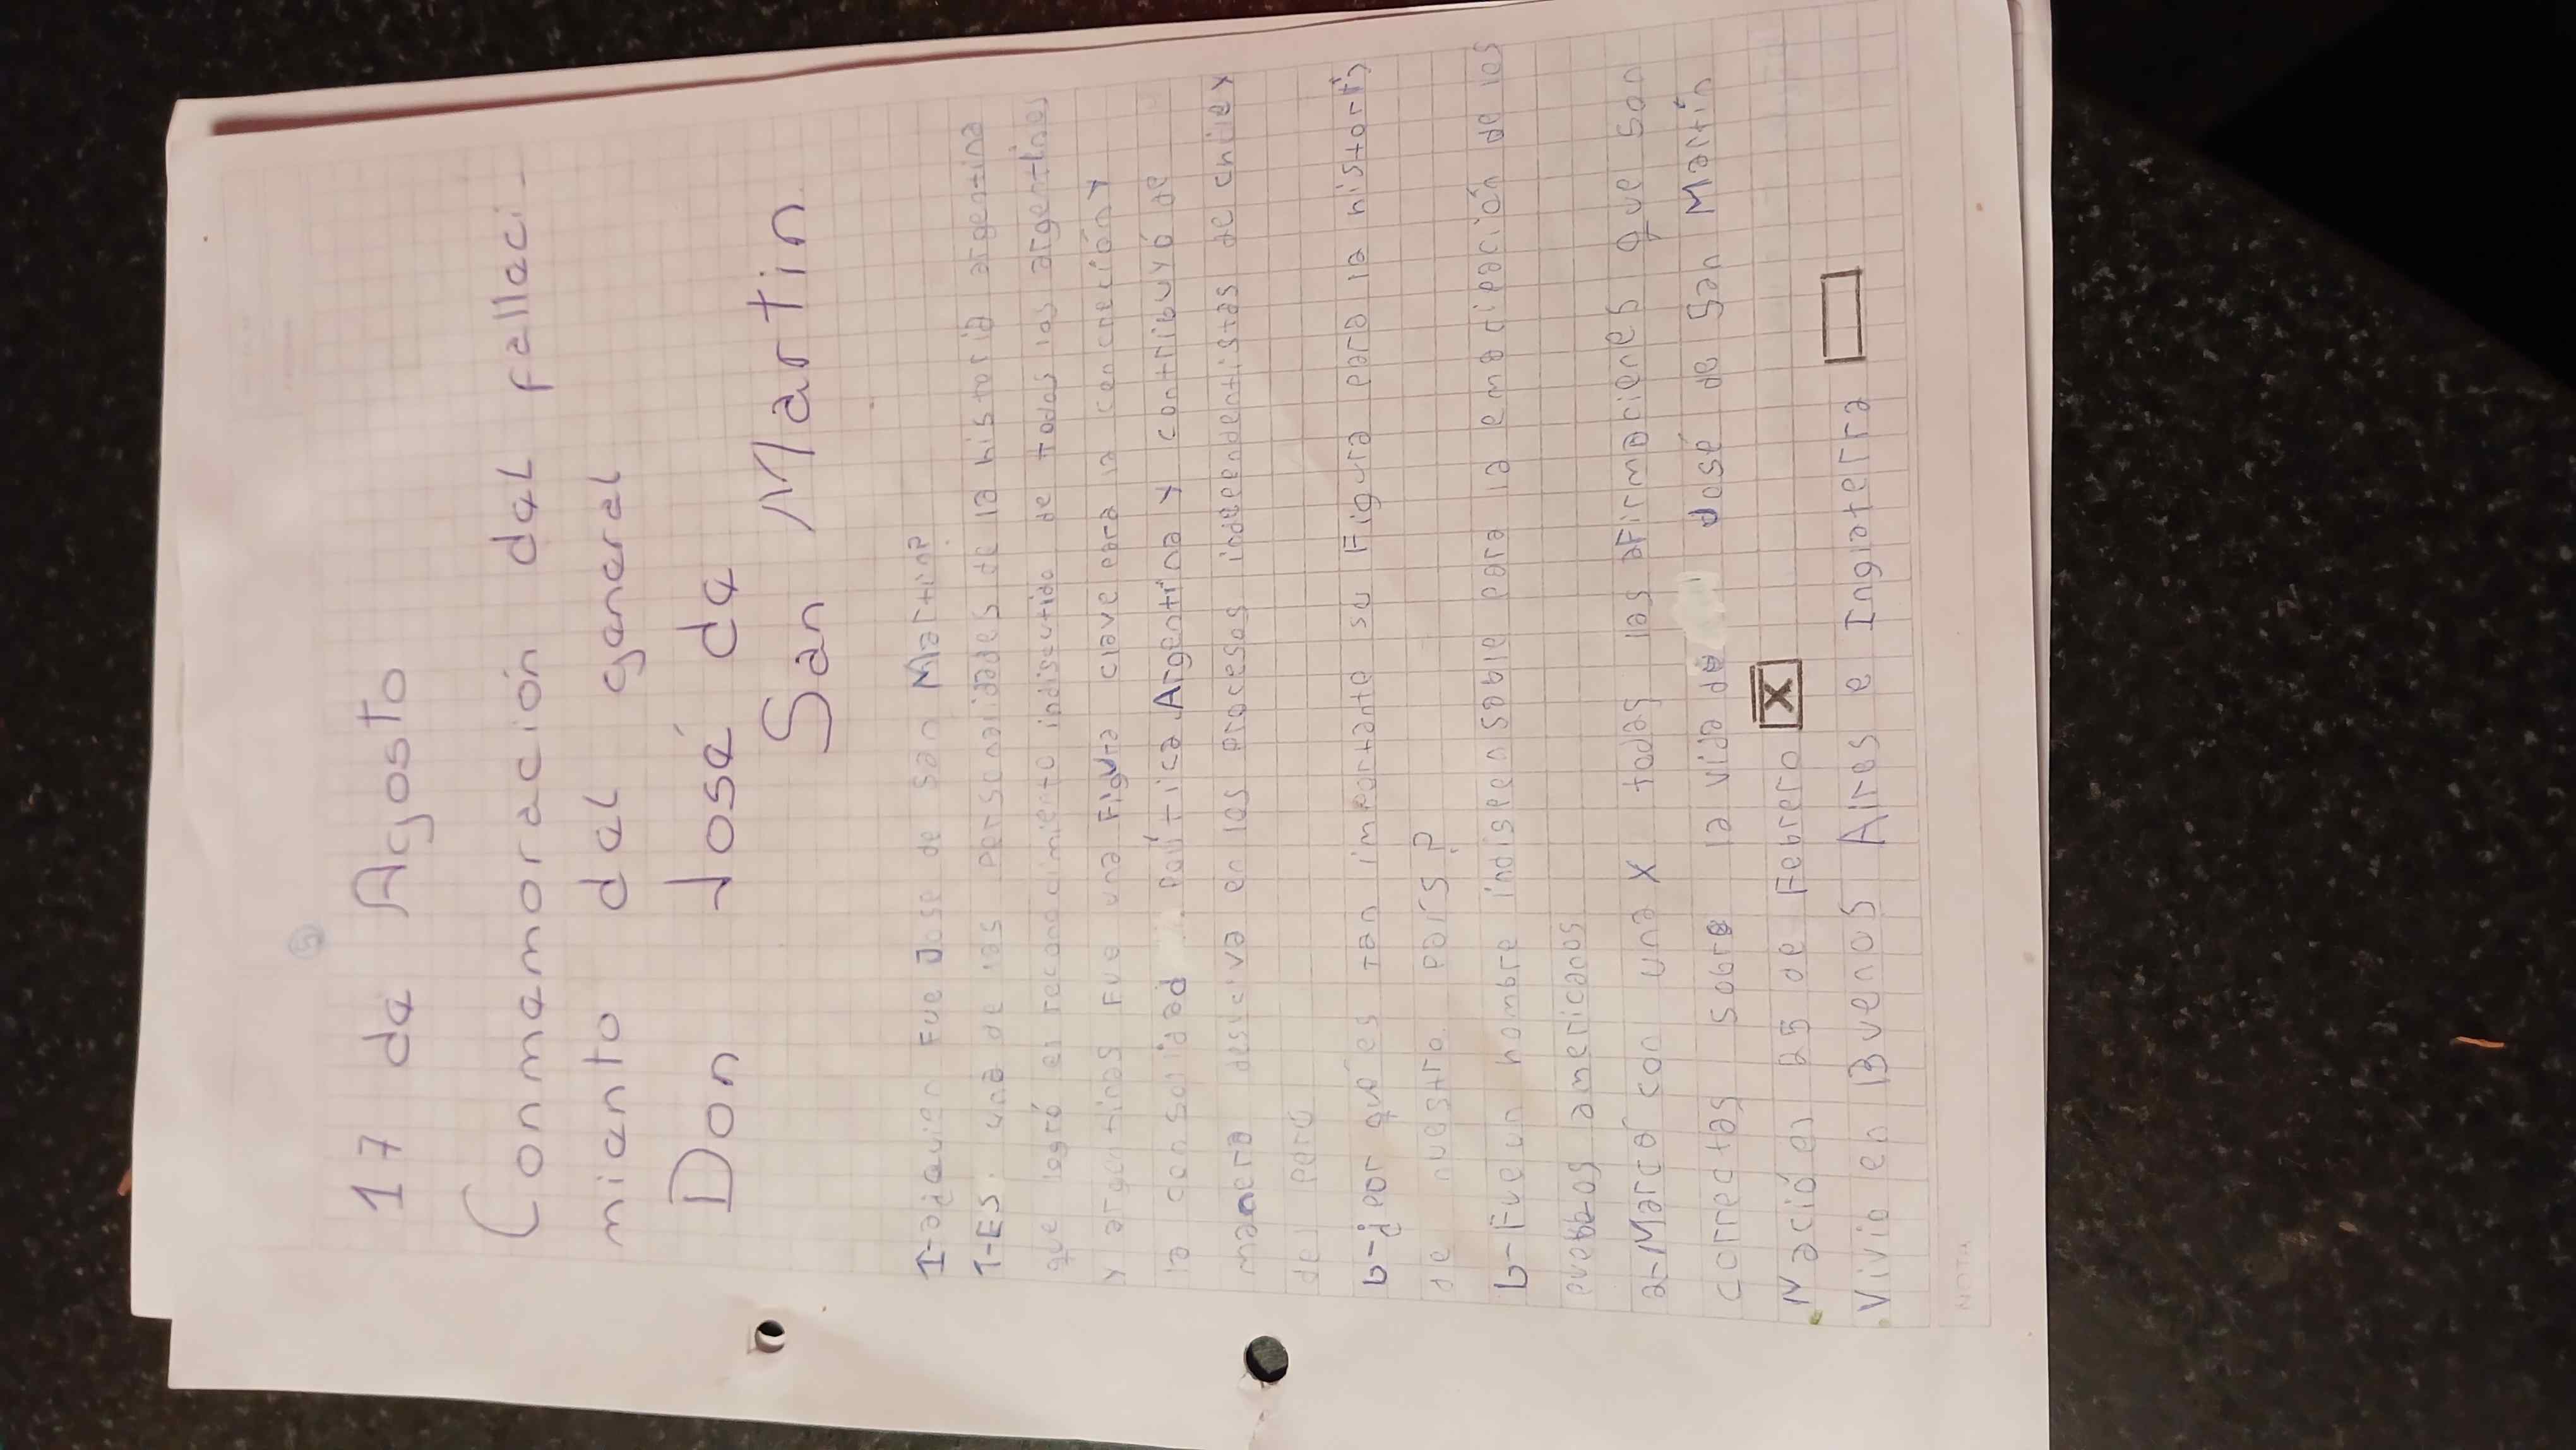 5
17 de Agosto
Conmemoración del falleci_
miento del general
Don José de
San Martin
1-a¿quien Fue José de San Martin?
1-Es una de las personalidades de la historia argentina
que logró el reconocimiento indiscutido de todos los argentinos
y argentinas Fue una Figura clave para la concreción y
la consolidad política Argentina y contribuyó de
manera desiciva en los procesos independentistas de chile y
del perú
b-¿por qué es tan importante su Figura para la historia
de nuestro país?
b-Fue un hombre indispensable para la emacipación de los
pueblos americanos
2-Marcá con una X todas las aFirmaciones que son
correctas sobre la vida de José de San Martín
Nació el 25 de Febrero X
Vivio en Buenos Aires e Inglaterra
NOTA